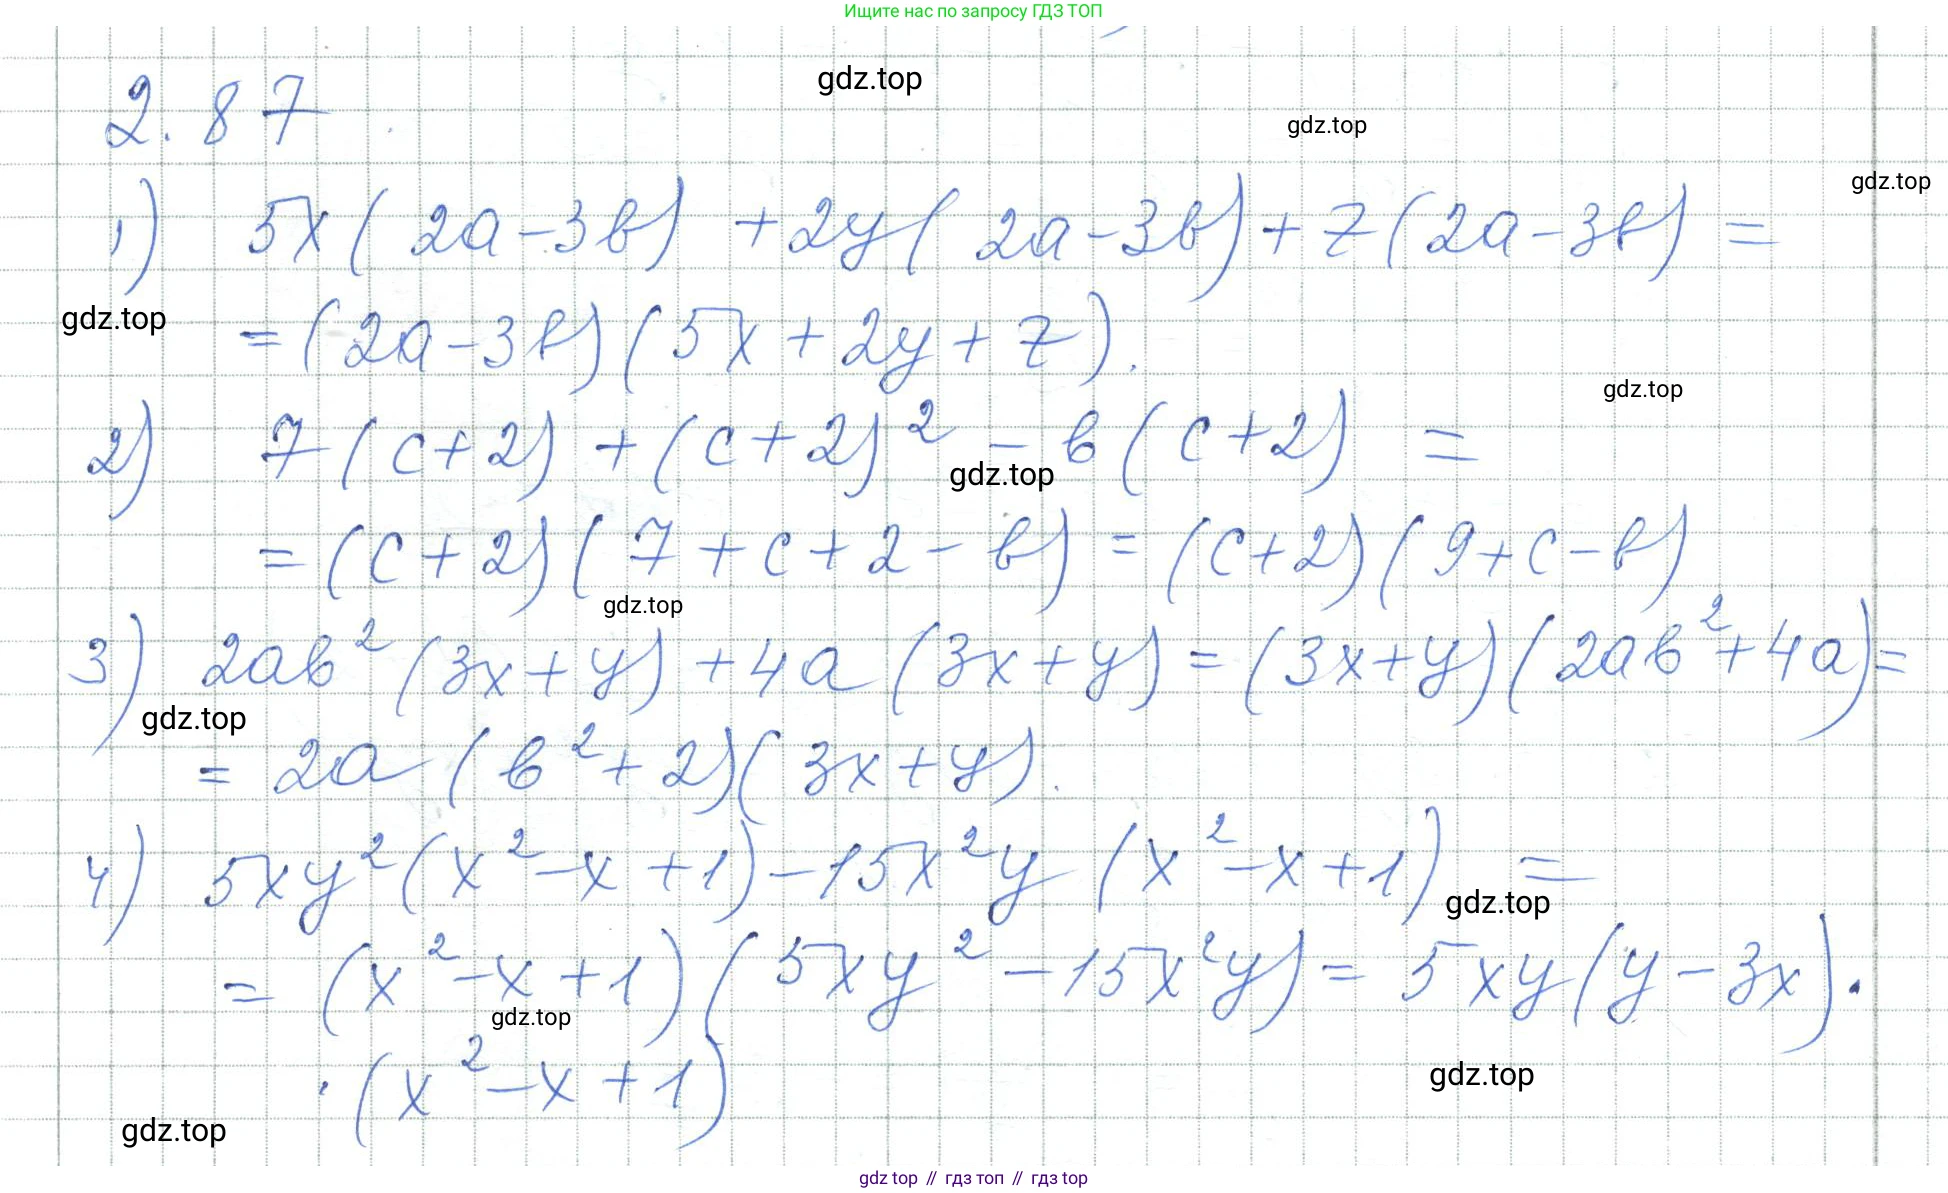 Ищите нас по запросу ГДЗ ТОП
gdz.top
2.87
gdz.top
gdz.top
1) 5x(2a-3b)+2y(2a-3b)+z(2a-3b)=
gdz.top
=(2a-3b)(5x+2y+z).
gdz.top
2) 7(c+2)+(c+2)²-b(c+2)=
gdz.top
=(c+2)(7+c+2-b)=(c+2)(9+c-b)
gdz.top
3) 2ab²(3x+y)+4a(3x+y)=(3x+y)(2ab²+4a)=
gdz.top
=2a(b²+2)(3x+y).
4) 5xy²(x²-x+1)-15x²y(x²-x+1)=
gdz.top
=(x²-x+1)(5xy²-15x²y)=5xy(y-3x)·
gdz.top
·(x²-x+1)
gdz.top
gdz.top
gdz top // гдз топ // гдз top